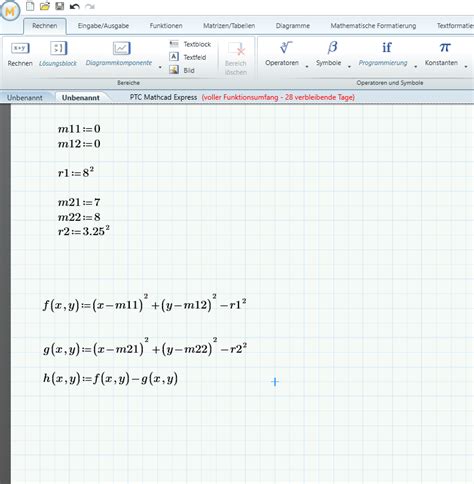 Rechnen Eingabe/Ausgabe Funktionen Matrizen/Tabellen Diagramme Mathematische Formatierung Textformati
Rechnen Lösungsblock Diagrammkomponente Textblock Textfeld Bild Bereich löschen Operatoren Symbole Programmierung Konstanten
Bereiche Operatoren und Symbole
Unbenannt Unbenannt PTC Mathcad Express (voller Funktionsumfang - 28 verbleibende Tage)
m11:=0
m12:=0
r1:=8²
m21:=7
m22:=8
r2:=3.25²
f(x,y):=(x−m11)²+(y−m12)²−r1²
g(x,y):=(x−m21)²+(y−m22)²−r2²
h(x,y):=f(x,y)−g(x,y)